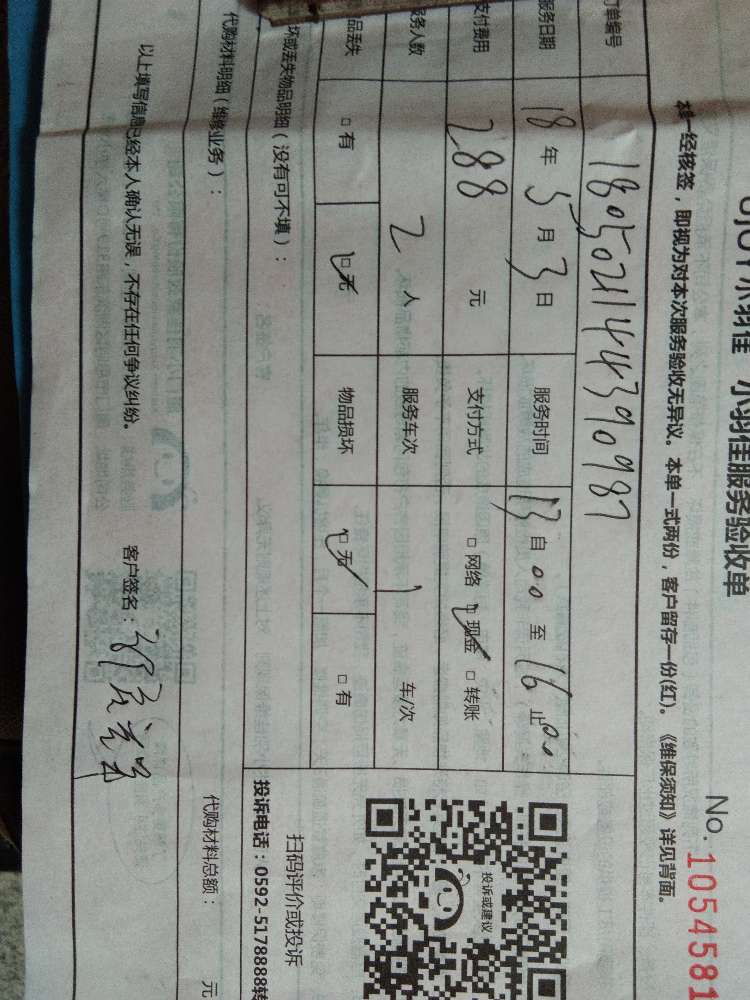 小羽佳 小羽佳服务验收单
No. 1054581
一经核签，即视为对本次服务验收无异议。本单一式两份，客户留存一份(红)。《维保须知》详见背面。
订单编号 1805021144390987
服务日期 18 年 5 月 3 日 服务时间 13 自 00 至 16 止 00
支付费用 288 元 支付方式 □ 网络 ☑ 现金 □ 转账
服务人数 2 人 服务车次 1 车/次
品丢失 □ 有 ☑ 无 物品损坏 ☑ 无 □ 有
坏或丢失物品明细（没有可不填）：
代购材料明细（维修业务）：
代购材料总额： 元
以上填写信息已经本人确认无误，不存在任何争议纠纷。 客户签名：
投诉或建议
扫码评价或投诉
投诉电话：0592-5178888转